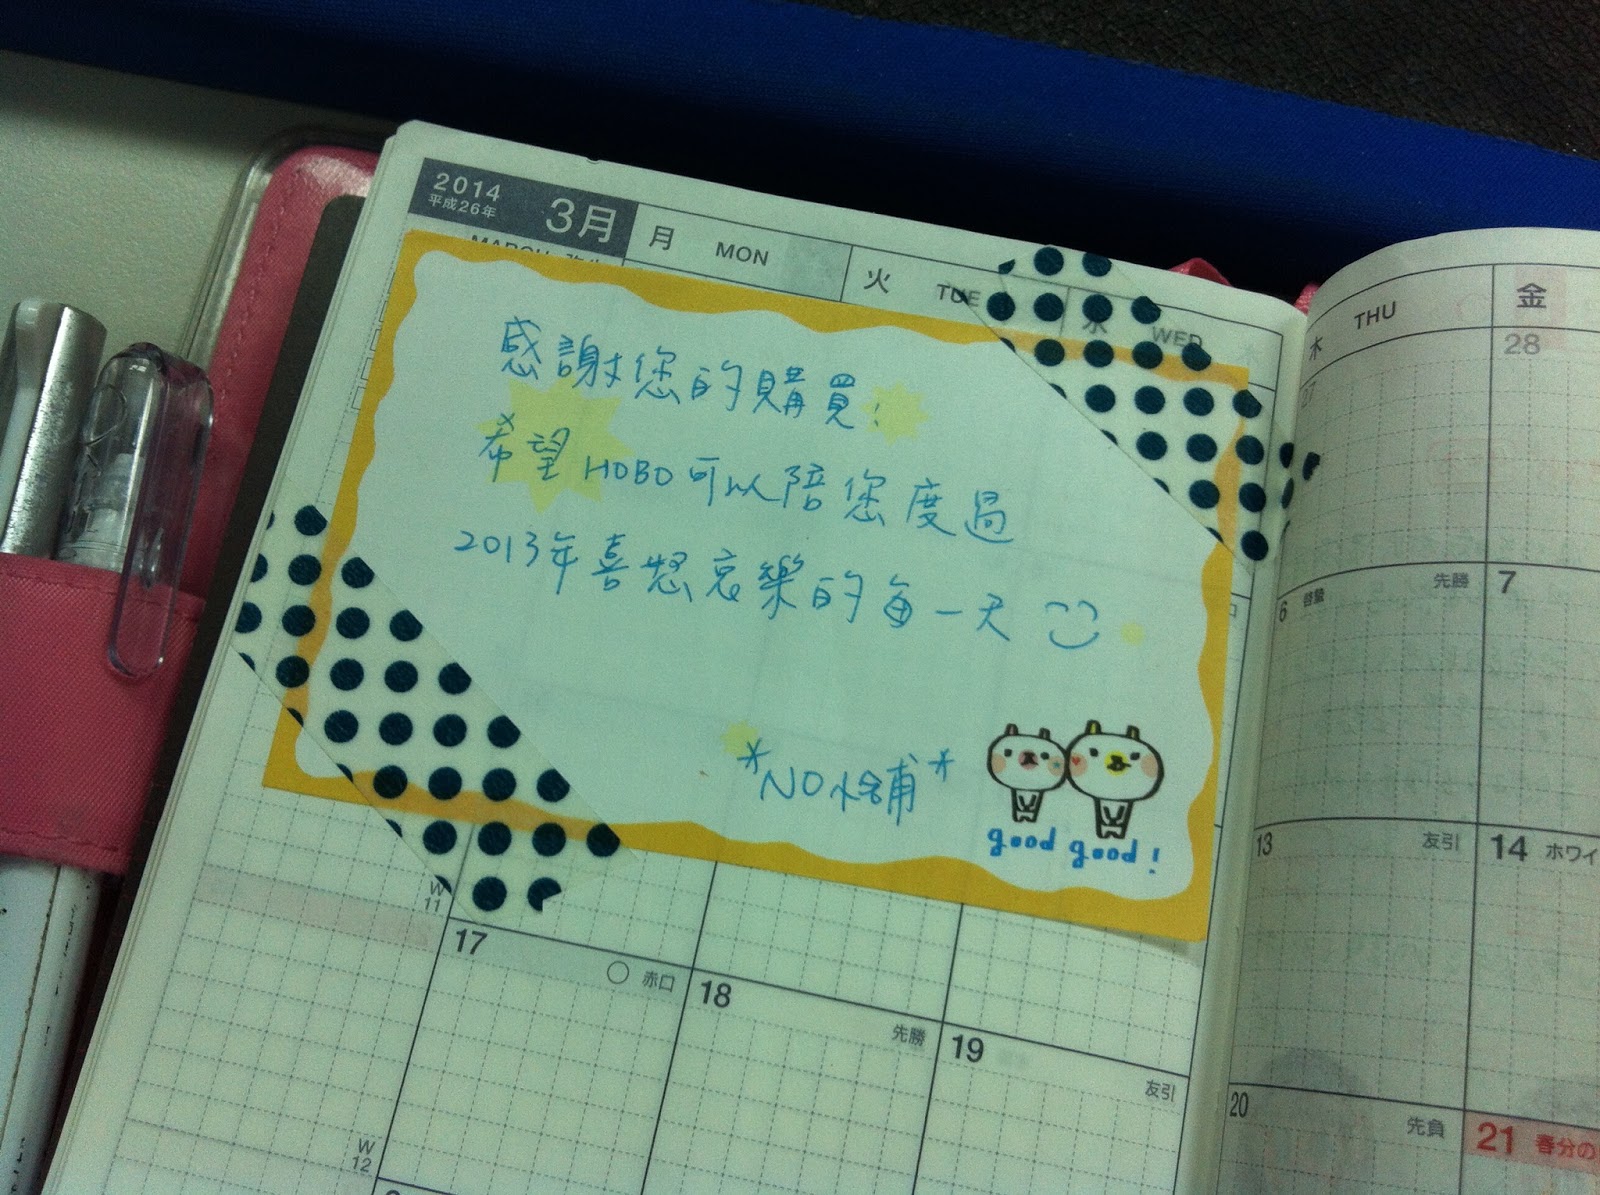 2014
平成26年
3月
月 MON
火 TUE
水 WED
木 THU
金
感謝您的購買!
希望HOBO可以陪您度過
2013年喜怒哀樂的每一天
*NO.1舖*
good good!
27
28
6 啓蟄 先勝
7
13 友引
14 ホワイ
W
11
17 赤口
18 先勝
19 友引
20 先負
21 春分の
W
12